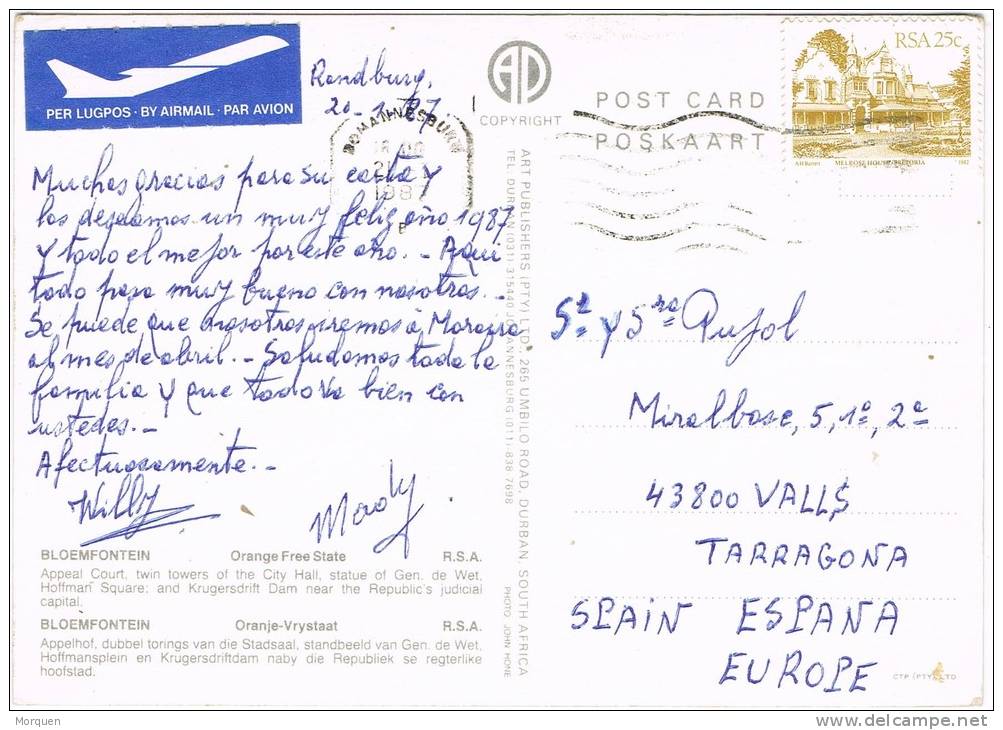 PER LUGPOS · BY AIRMAIL · PAR AVION
Randburg,
20-1-87
JOHANNESBURG
1987
Muchas gracias para su carta y
los deseamos un muy feliz año 1987
y todo el mejor por este año. - Aqui
todo pasa muy bueno con nosotros. -
Se puede que nosotros iremos à Moraira
al mes de abril. - Saludamos toda la
familia y que todo va bien con
ustedes. -
Afectuosamente. -
Willy
Mady.
BLOEMFONTEIN Orange Free State R.S.A.
Appeal Court, twin towers of the City Hall, statue of Gen. de Wet,
Hoffman Square; and Krugersdrift Dam near the Republic's judicial
capital.
BLOEMFONTEIN Oranje-Vrystaat R.S.A.
Appelhof, dubbel torings van die Stadsaal, standbeeld van Gen. de Wet,
Hoffmansplein en Krugersdriftdam naby die Republiek se regterlike
hoofstad.
COPYRIGHT
ART PUBLISHERS (PTY) LTD., 265 UMBILO ROAD, DURBAN, SOUTH AFRICA
TEL. DURBAN (031) 315440 JOHANNESBURG (011)-838 7698
PHOTO: JOHN HONE
POST CARD
POSKAART
RSA 25c
MELROSE HOUSE, PRETORIA
1982
Sr y Sra Pujol
Miralbosc, 5, 1º, 2ª
43800 VALLS
TARRAGONA
SPAIN ESPANA
EUROPE
CTP (PTY) LTD
Morquen
www.delcampe.net